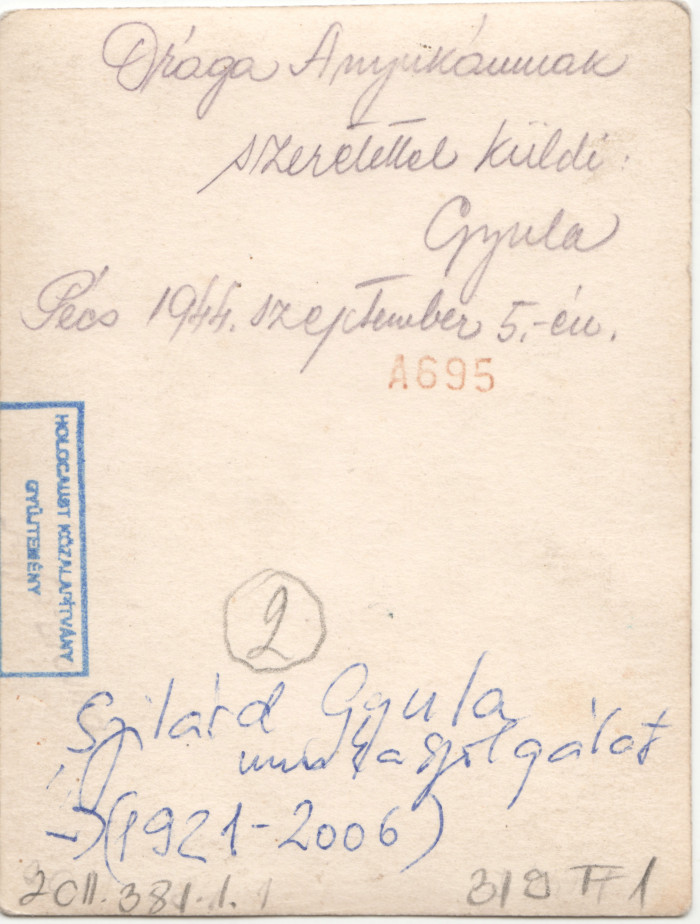 Drága Anyukámnak
szeretettel küldi:
Gyula
Pécs 1944. szeptember 5.-én.
A695
HOLOCAUST KÖZALAPÍTVÁNY
GYŰJTEMÉNY
2
Szilárd Gyula
munkaszolgálat
(1921-2006)
2011.381.1.
319